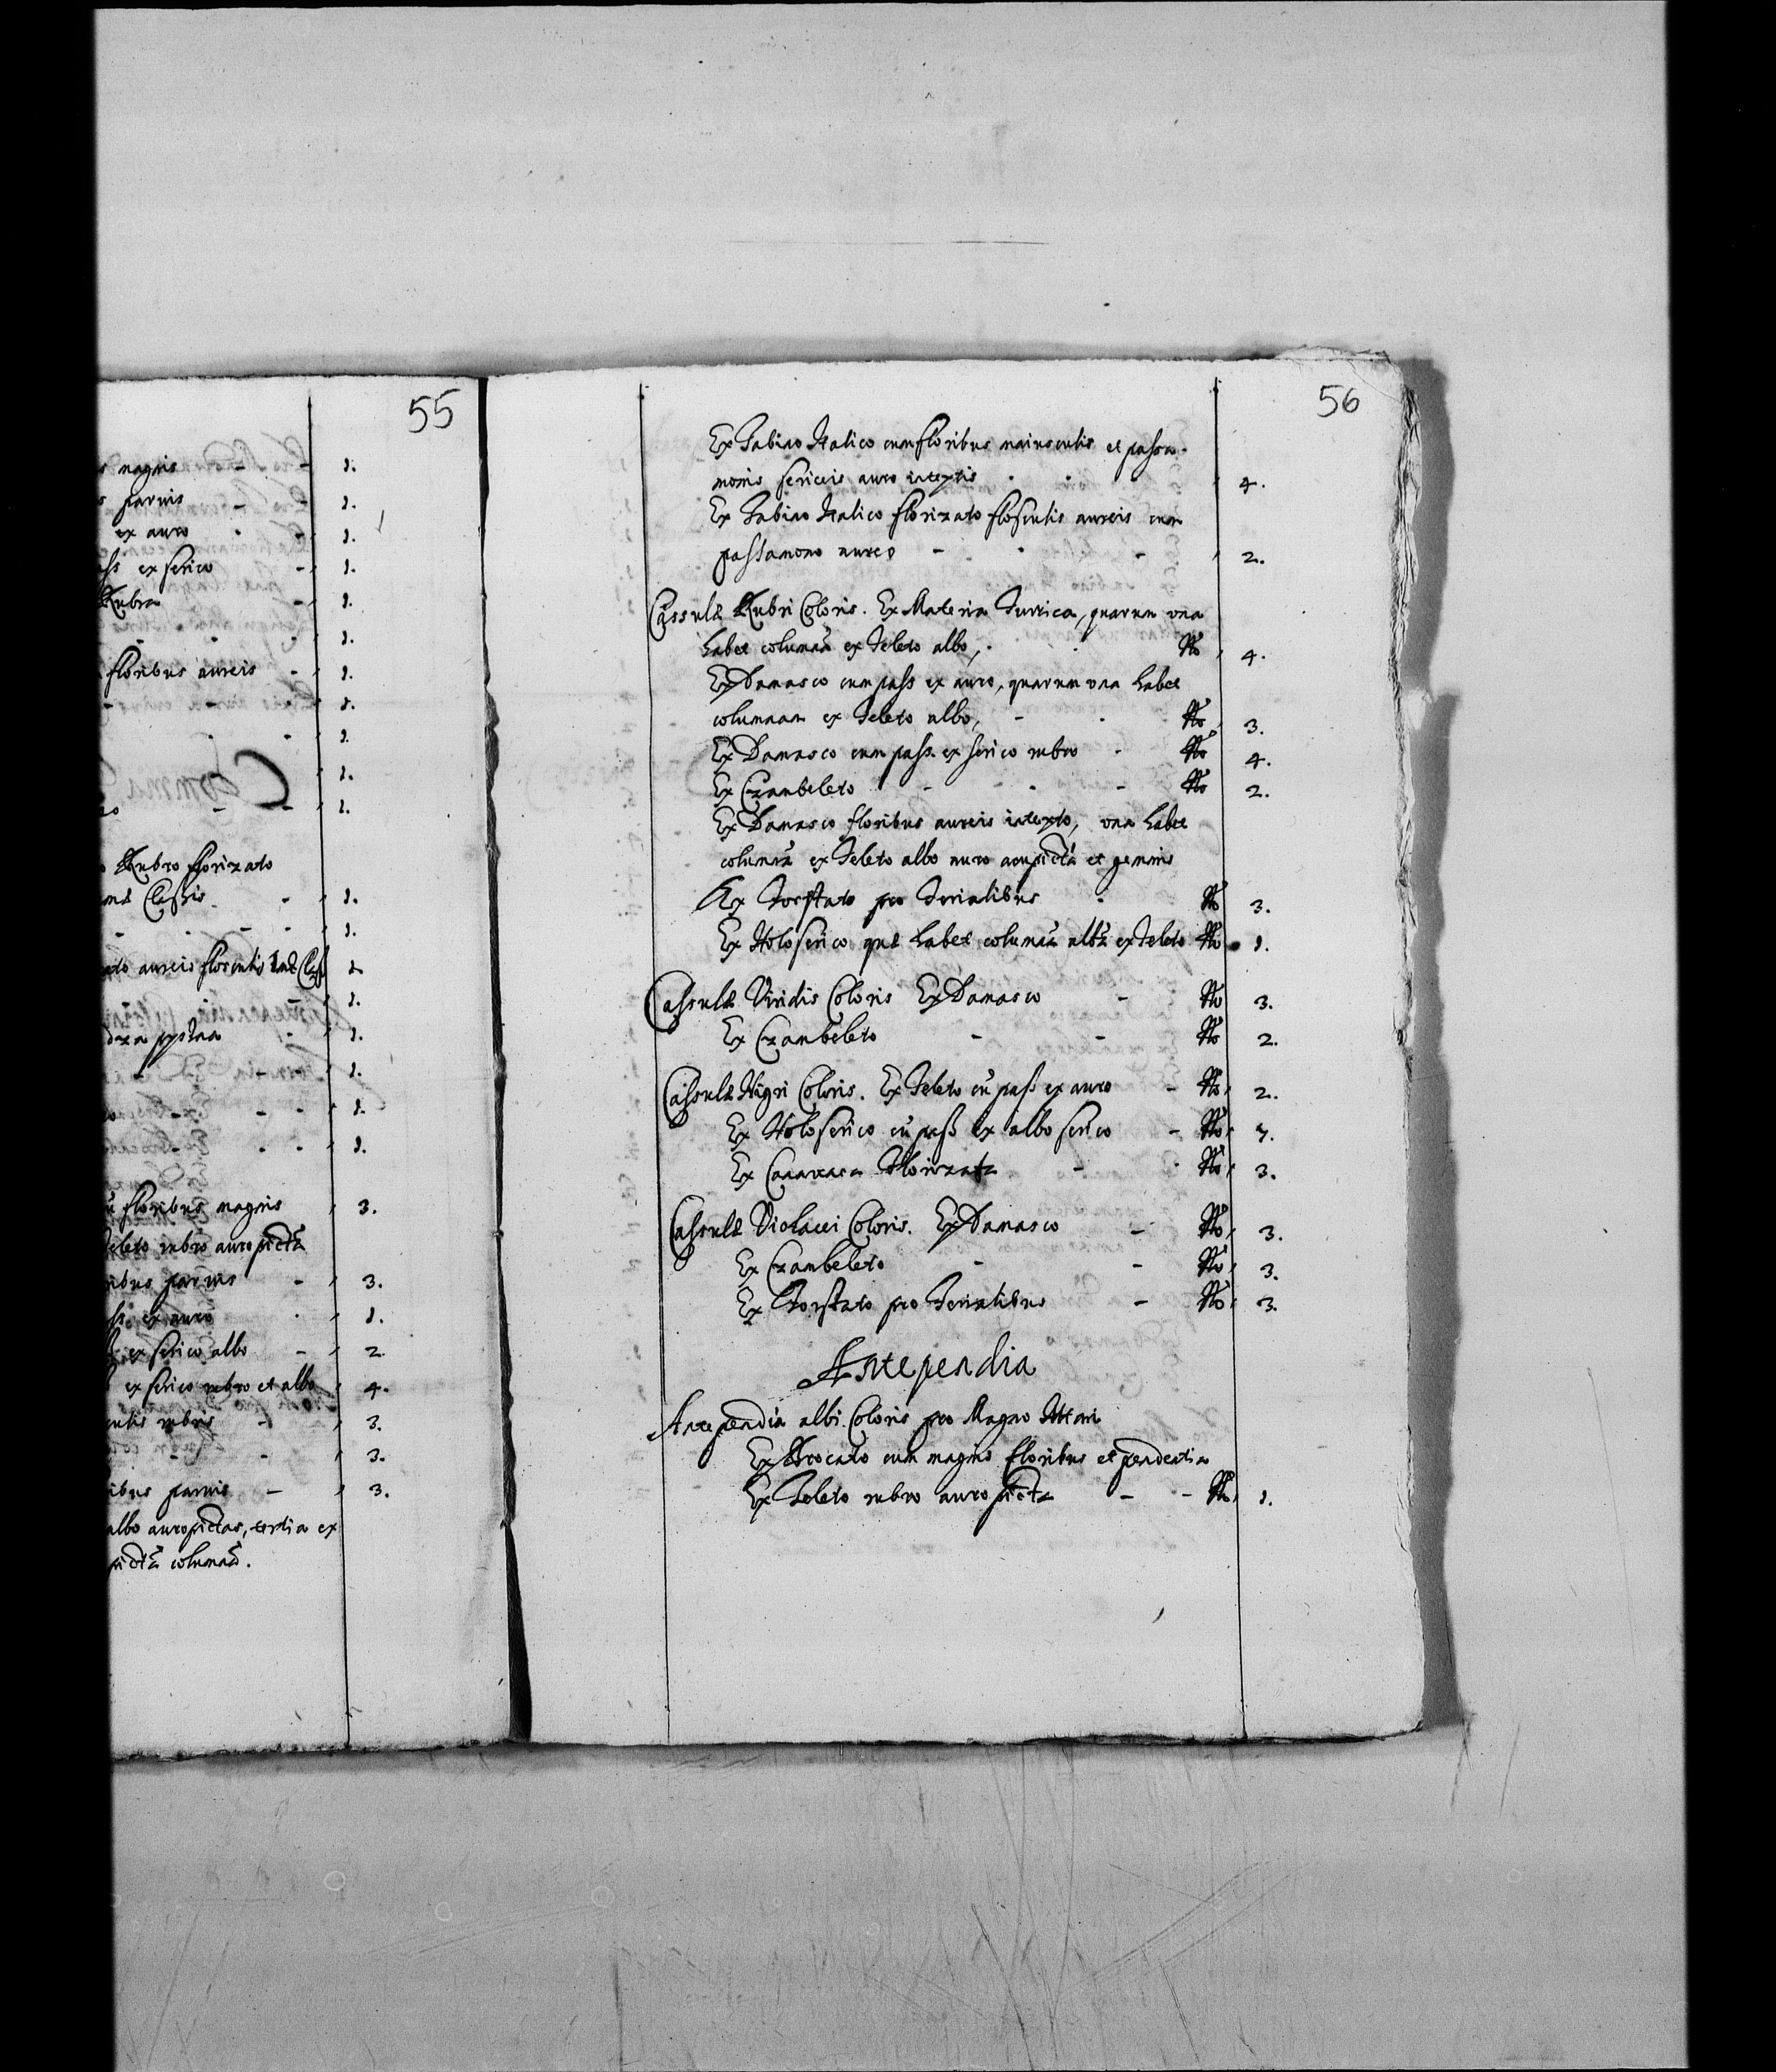 55
s magnis - - 1.
s parvis - - 1.
ex auro - - 1.
ass ex serico - 1.
Rubra - 1.
- - - 1.
floribus aureis - 1.
- - - 1.
- - 1.
1.
- - 1.
Rubro florizato
Classis - 1.
- - - - 1.
aureis flosculis 1.
- - - 1.
- 1.
- - 1.
- - - 1.
- - - 1.
ũ floribus magnis 3.
Teleto rubro auro pictã
ribus parvis - 3.
ss. ex auro - 1.
ex serico albo - 2.
ex serico rubro et albo 4.
culis rubris - 3.
- - 3.
ribus parvis - 3.
albo auropictas, tertia ex
pictã columnã.
56
Ex Tabino Italico cum floribus maiusculis et passa-
monis sericeis auro intextis - - - 4.
Ex Tabino Italico florizato flosculis aureis cum
passamono aureo - - - 2.
Cassulæ Rubri Coloris. Ex Materia Turcica, quarum una
habet columnã ex Teleto albo, - - No 4.
Ex Damasco cum pass ex auro, quarum una habet
columnam ex Teleto albo, - - No 3.
Ex Damasco cum pass. ex serico rubro - No 4.
Ex Czambeleto - - - No 2.
Ex Damasco floribus aureis intexto, una habet
columnã ex Teleto albo auro acupictã et gemmis
Ex pro Ferialibus - No 3.
Ex Holoserico quæ habet columnã albã ex Teleto No 1.
Cassulæ Viridis Coloris Ex Damasco - No 3.
Ex Czambeleto - - No 2.
Cassulæ Nigri Coloris. Ex Teleto cũ pass ex auro - No 2.
Ex Holoserico cũ pass ex albo serico - No
Ex florizata - - No 3.
Cassulæ Violacei Coloris. Ex Damasco - No 3.
Ex Czambeleto - - No 3.
Ex pro Ferialibus - No 3.
Antependia
Antependia albi Coloris pro Magno Altari
Ex Brocato cum magnis floribus et pendentia
Ex Teleto rubro auro picta - - No 1.